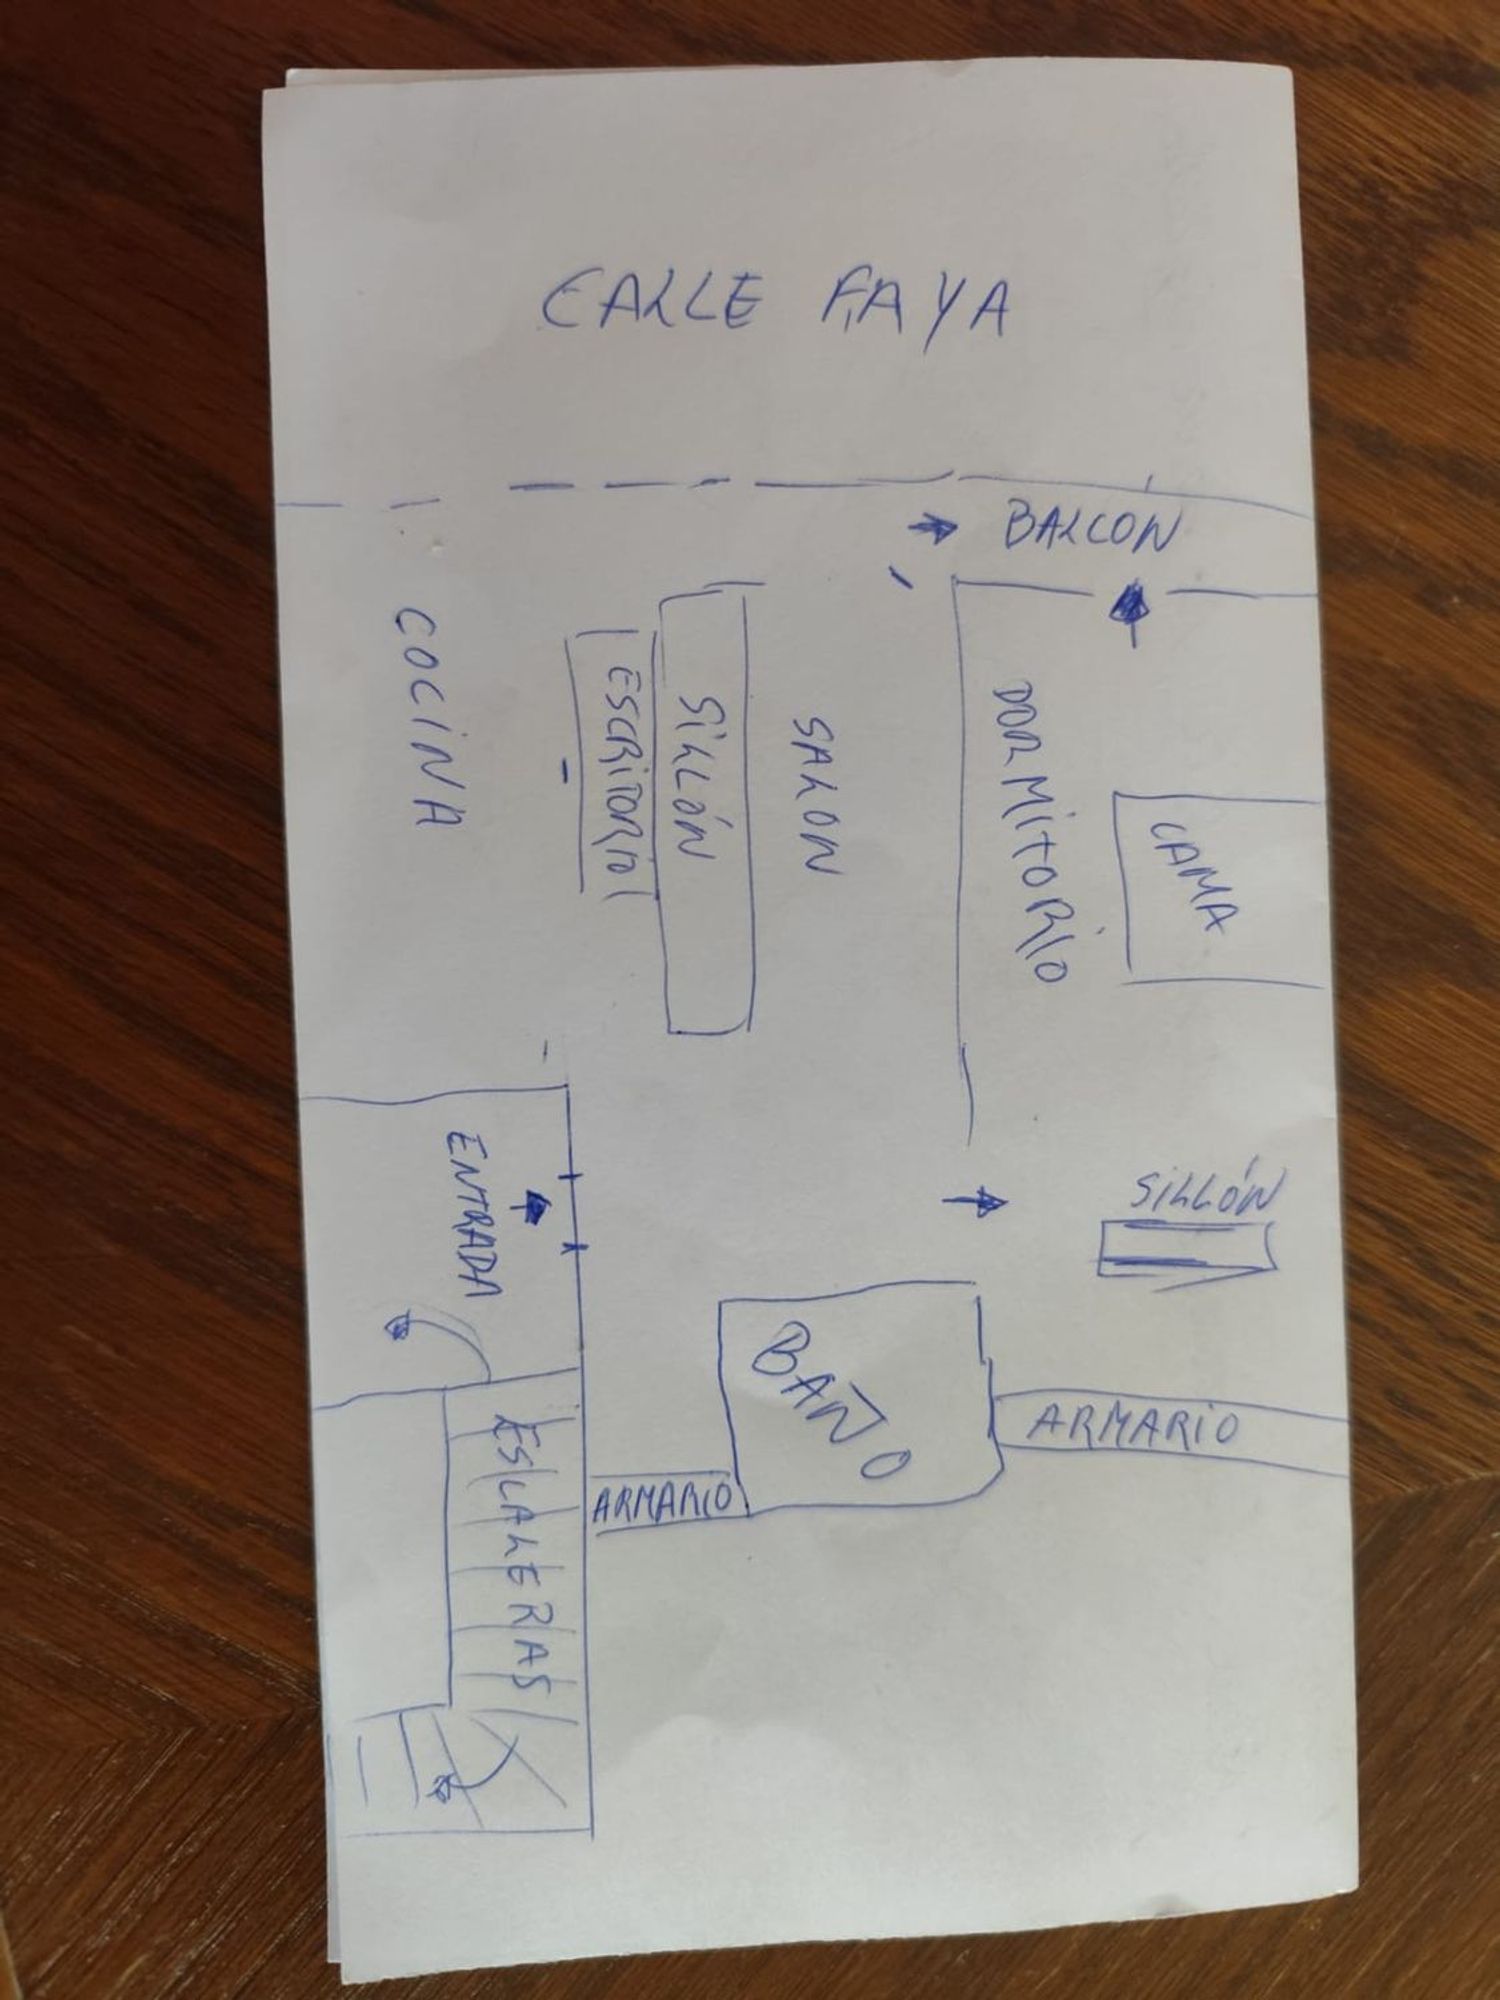 CALLE FAYA
BALCON
COCINA
ESCRITORIO
SILLÓN
SALON
DORMITORIO
CAMA
ENTRADA
SILLÓN
BAÑO
ARMARIO
ARMARIO
ESCALERAS